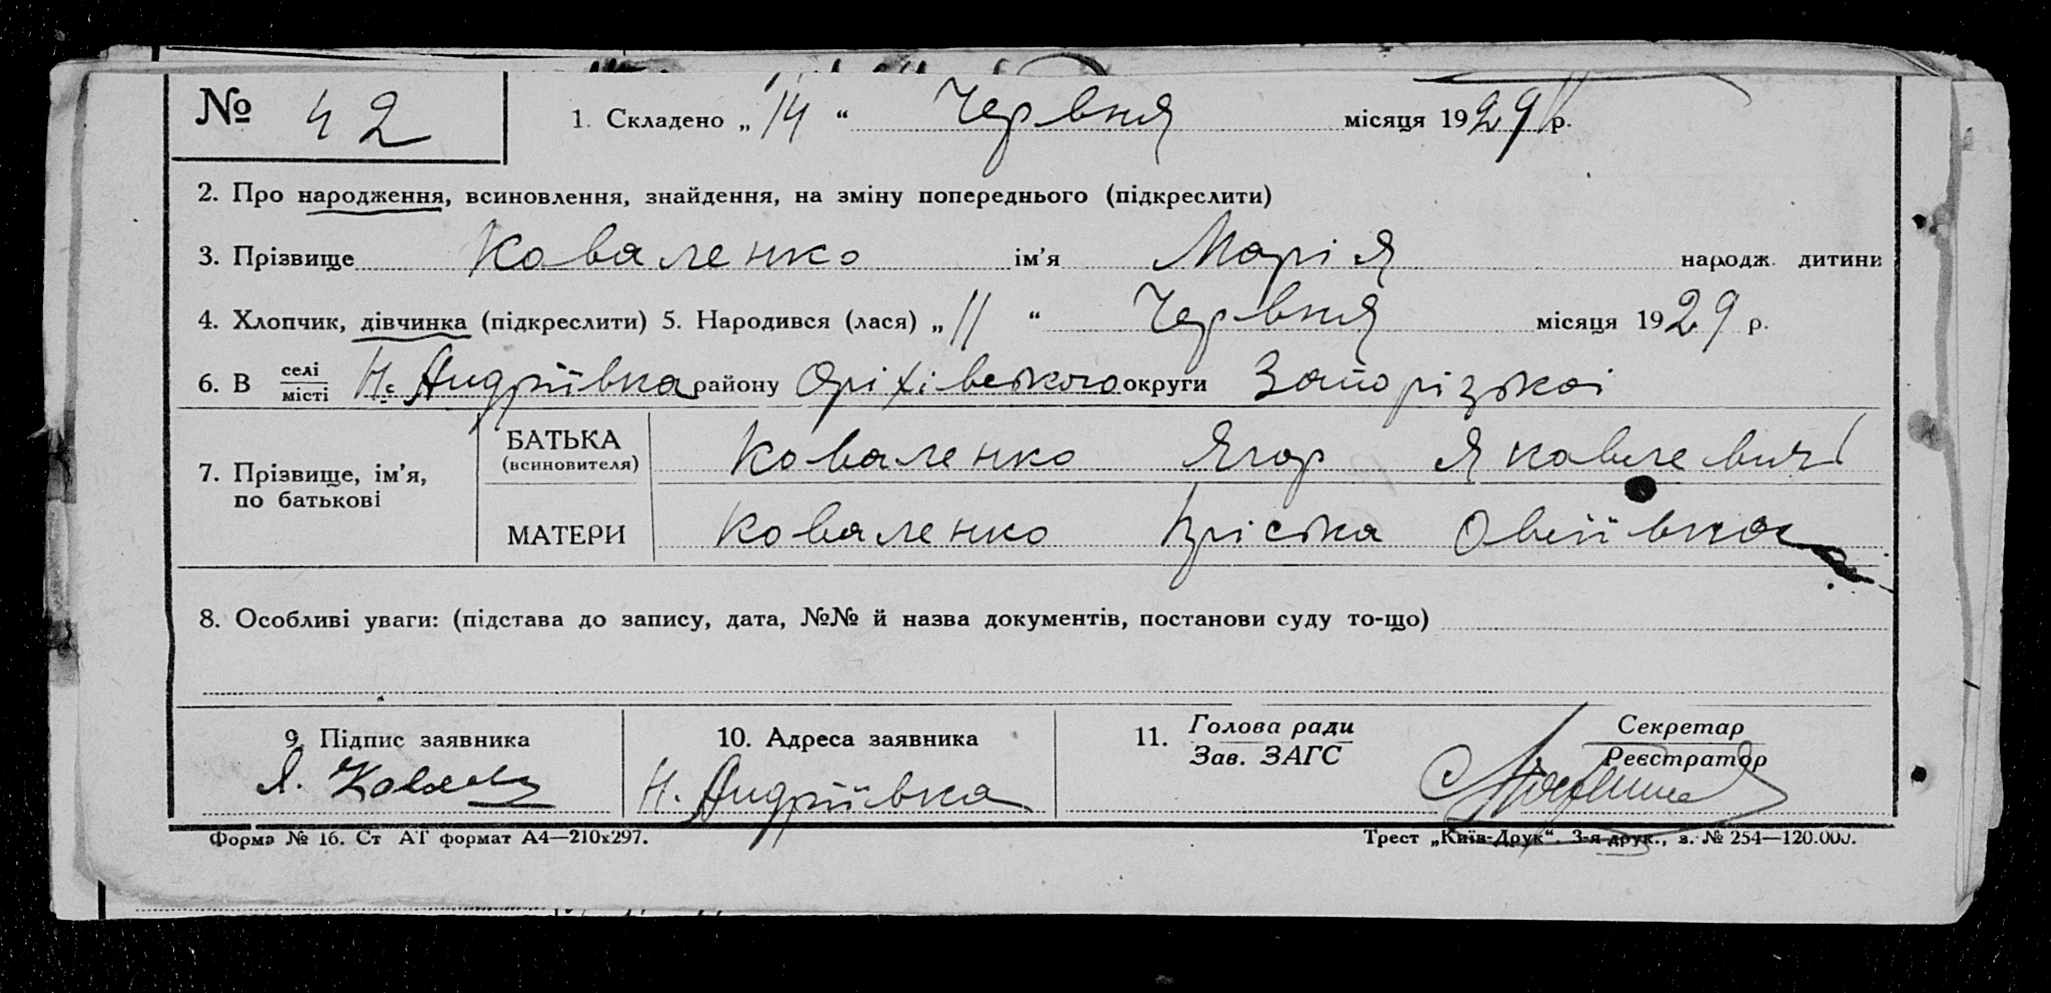 № 42
1. Складено „14“ Червня місяця 1929 р.
2. Про народження, всиновлення, знайдення, на зміну попереднього (підкреслити)
3. Прізвище Коваленко ім'я Марія народж. дитини
4. Хлопчик, дівчинка (підкреслити) 5. Народився (лася) „11“ Червня місяця 1929 р.
6. В селі місті Н. Андріївка району Оріхівського округи Запорізької
7. Прізвище, ім'я, по батькові
БАТЬКА (всиновителя) Коваленко Ягор Якавлевич
МАТЕРИ Коваленко
8. Особливі уваги: (підстава до запису, дата, №№ й назва документів, постанови суду то-що)
9. Підпис заявника
10. Адреса заявника
11. Голова ради Зав. ЗАГС
Секретар Реєстратор
Н. Андріївка
Форма № 16. Ст АТ формат А4—210х297.
Трест „Київ-Друк“. 3-я друк., з. № 254—120.000.